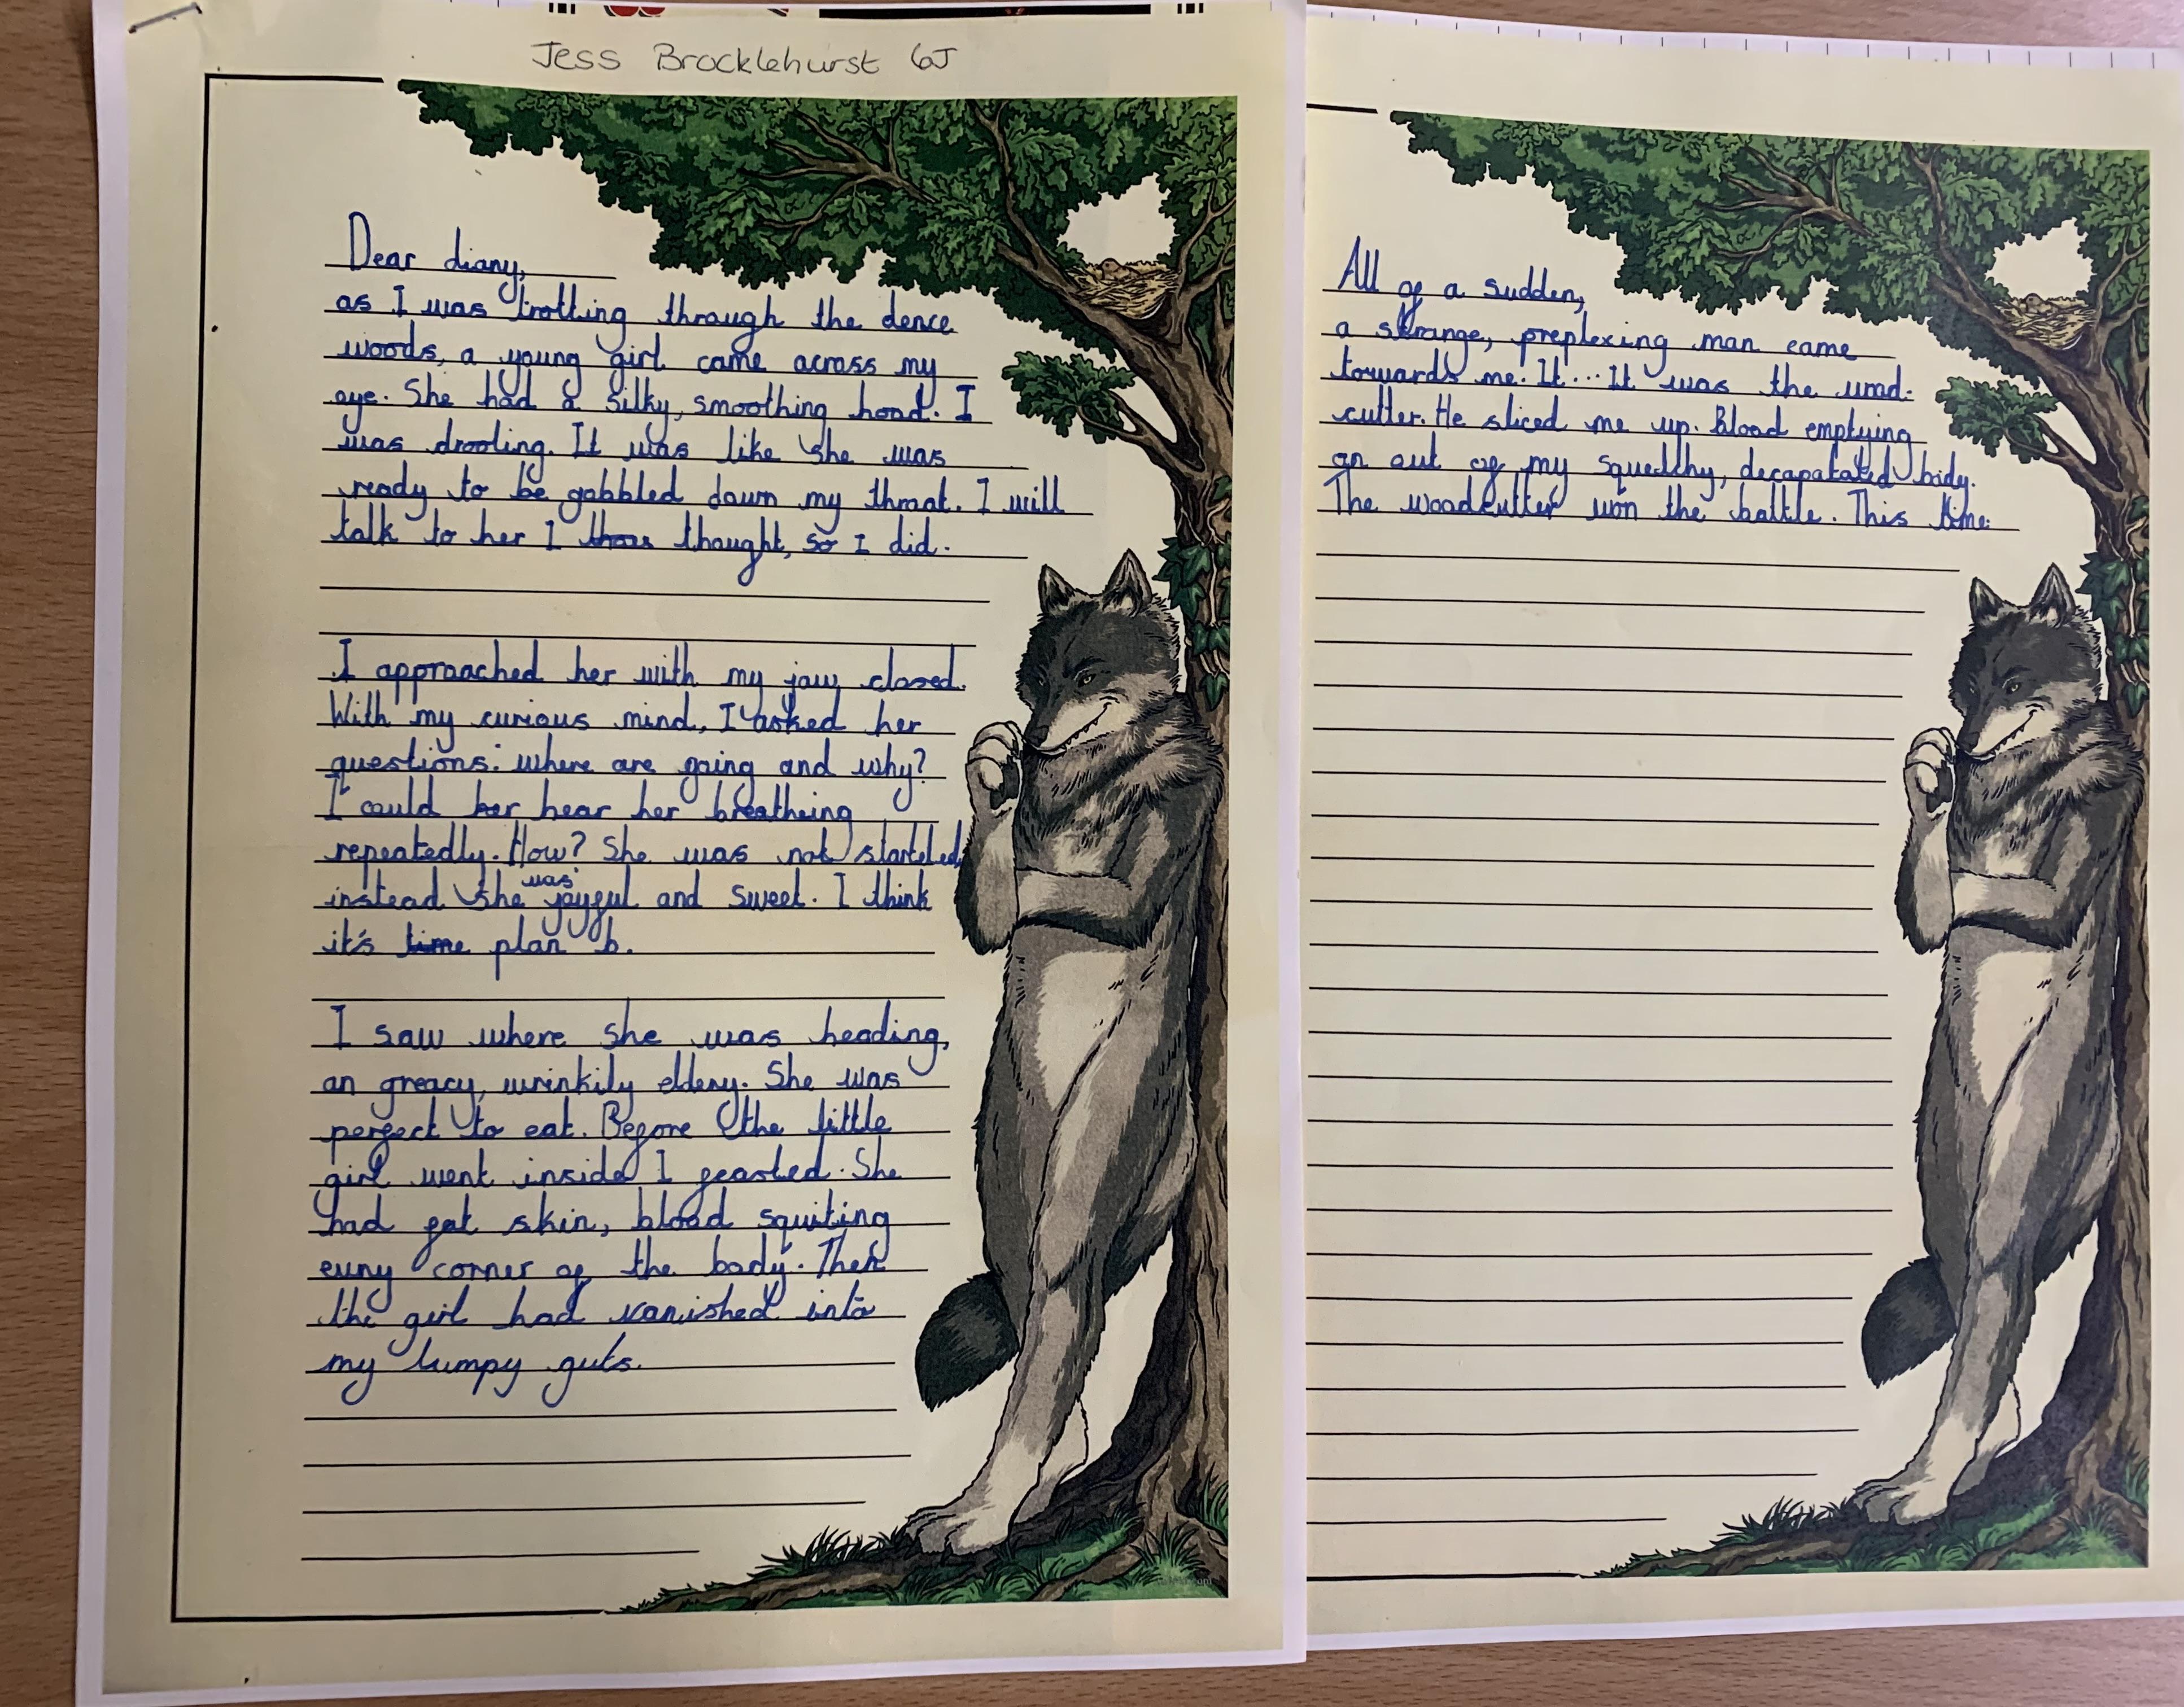 Jess Brocklehurst 6J
Dear diary,
as I was trotting through the dence
woods, a young girl came across my
eye. She had a silky, smoothing hood. I
was drooling. It was like she was
ready to be gobbled down my throat. I will
talk to her I thought, so I did.
I approached her with my jaw closed.
With my curious mind, I asked her
questions: where are going and why?
I could hear her breatheing
repeatedly. How? She was not starteled,
instead she was joyful and sweet. I think
it's plan b.
I saw where she was heading,
an greacy, wrinkily eldery. She was
perfect to eat. Before the little
girl went inside I feasted. She
had fat skin, blood squiting
every corner of the body. Then
the girl had vanished into
my lumpy guts.
All of a sudden,
a strange, preplexing man came
torwards me. It... It was the wood-
cutter. He sliced me up. Blood emptying
out of my squedchy, decapatated body.
The woodcutter won the battle. This time.